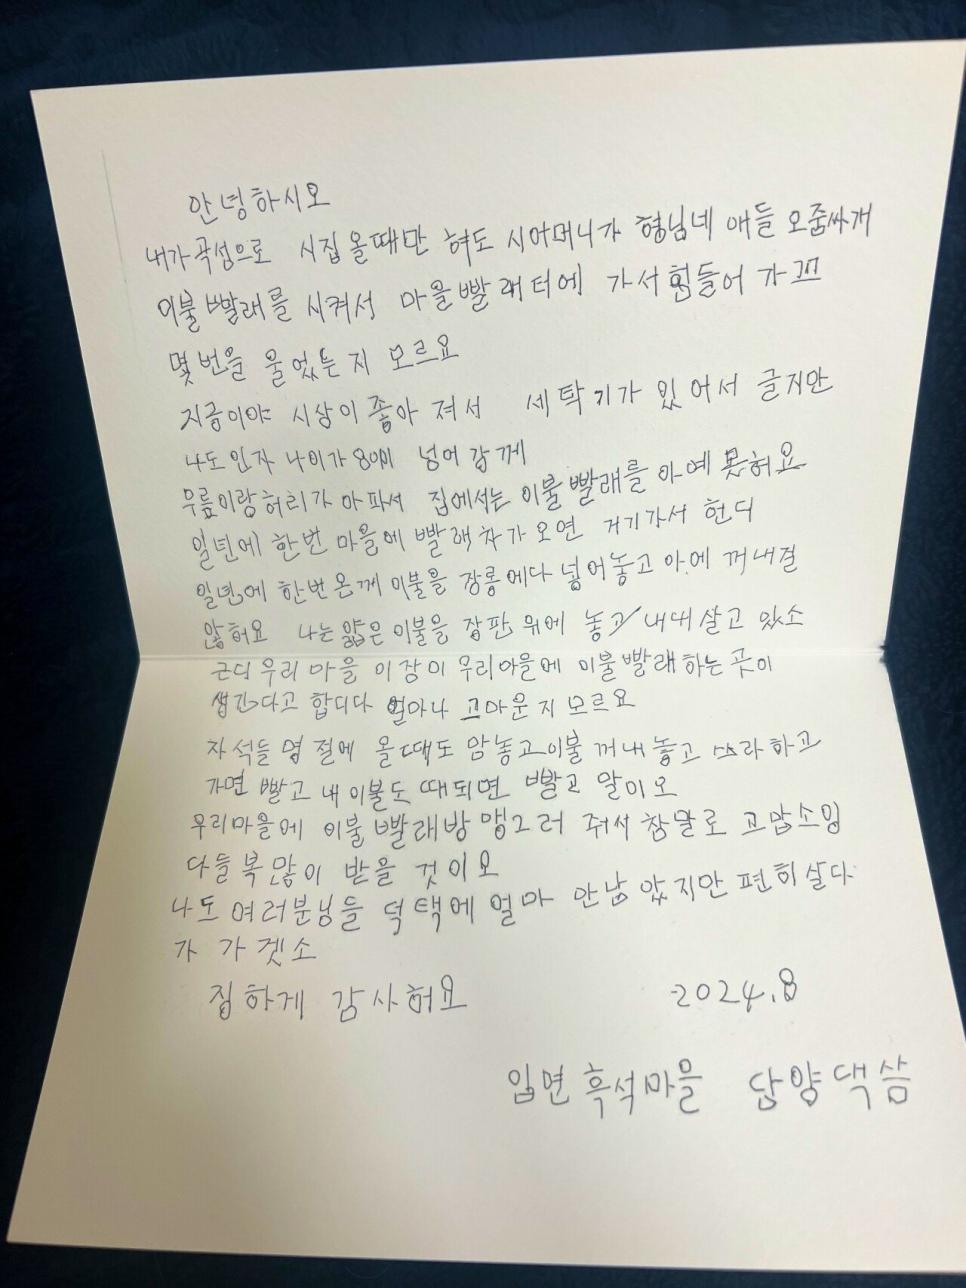 안녕하시오
내가 곡성으로 시집 올때만 혀도 시어머니가 형님네 애들 오줌싸개
이불 빨래를 시켜서 마을 빨래터에 가서 힘들어 가꼬
몇번을 울었는지 모르요
지금이야 시상이 좋아 져서 세탁기가 있어서 글지만
나도 인자 나이가 80이 넘어 강께
무릎이랑 허리가 아파서 집에서는 이불 빨래를 아예 못허요
일년에 한번 마을에 빨래차가 오면 거기가서 헌디
일년에 한번 온께 이불을 장롱에다 넣어놓고 아에 꺼내질
않허요 나는 얇은 이불을 장판 위에 놓고 내내 살고 있소
근디 우리 마을 이장이 우리마을에 이불빨래 하는 곳이
생긴다고 합디다 얼마나 고마운지 모르요
자석들 명절에 올때도 맘놓고 이불 꺼내 놓고 쓰라하고
가면 빨고 내 이불도 때되면 빨고 말이오
우리마을에 이불 빨래방 맹그러 줘서 참말로 고맙소잉
다들 복 많이 받을 것이오
나도 여러분님들 덕택에 얼마 안남았지만 편히 살다
가 가겟소
집하게 감사혀요 2024.8
입면 흑석마을 담양댁 씀